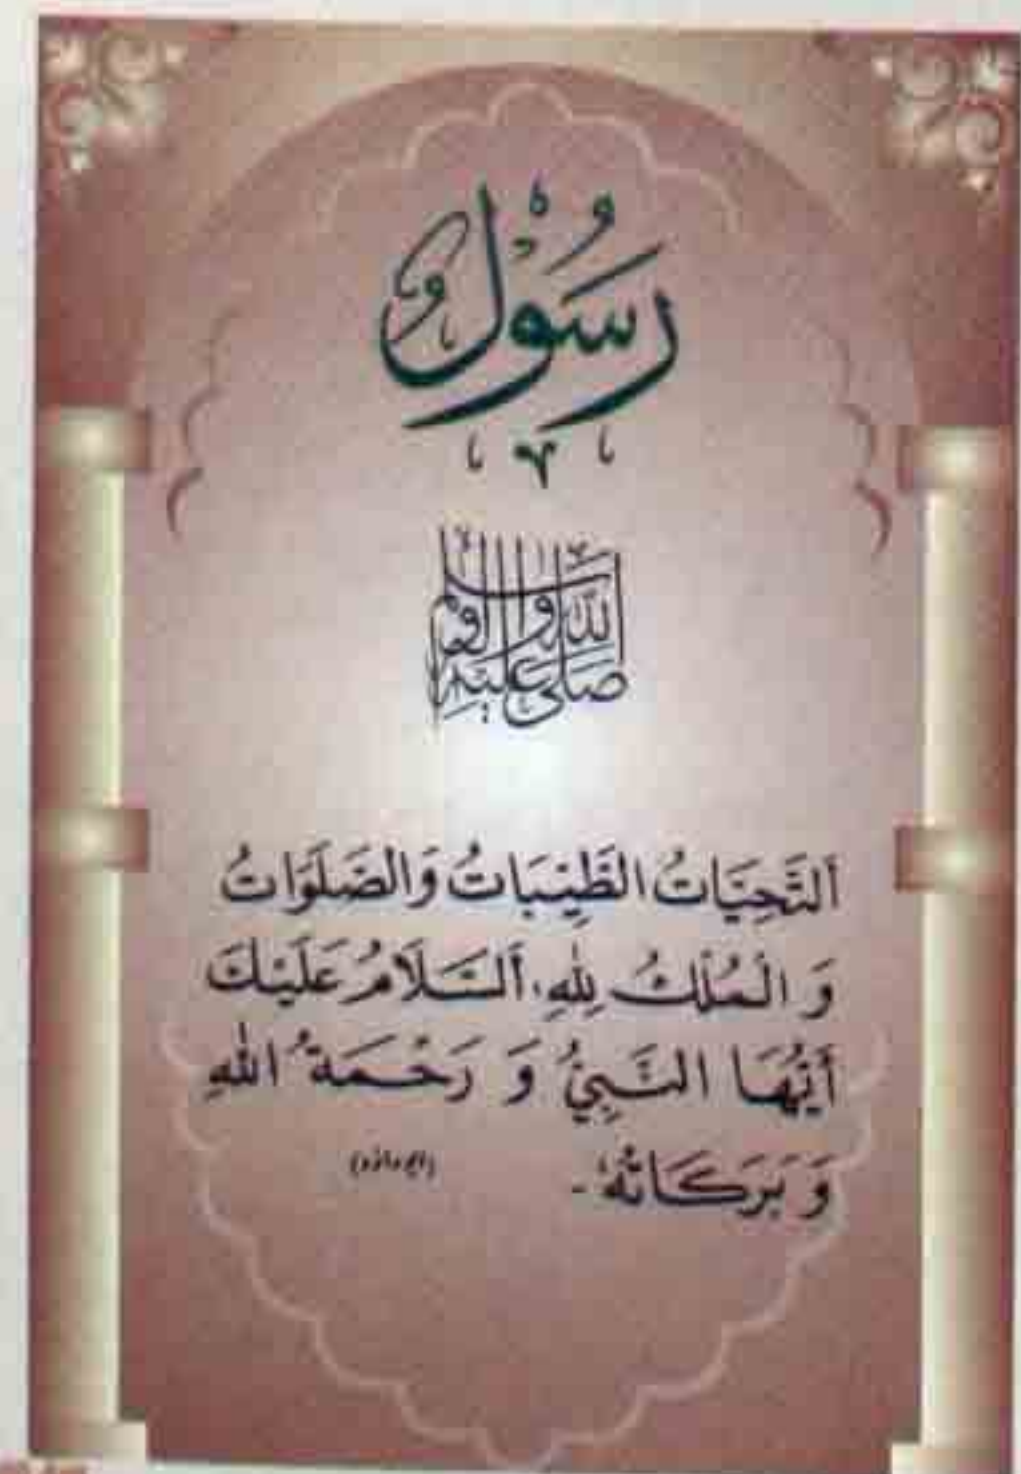 رَسُوْلٌ
صَلَّى اللهُ عَلَيْهِ وَاٰلِهٖ وَسَلَّم
اَلتَّحِيَّاتُ الطَّيِّبَاتُ وَالصَّلَوَاتُ
وَ الْمُلْكُ لِلّٰهِ، اَلسَّلَامُ عَلَيْكَ
أَيُّهَا النَّبِيُّ وَ رَحْمَةُ اللهِ
وَ بَرَكَاتُهٗ۔ (ابو داؤد)